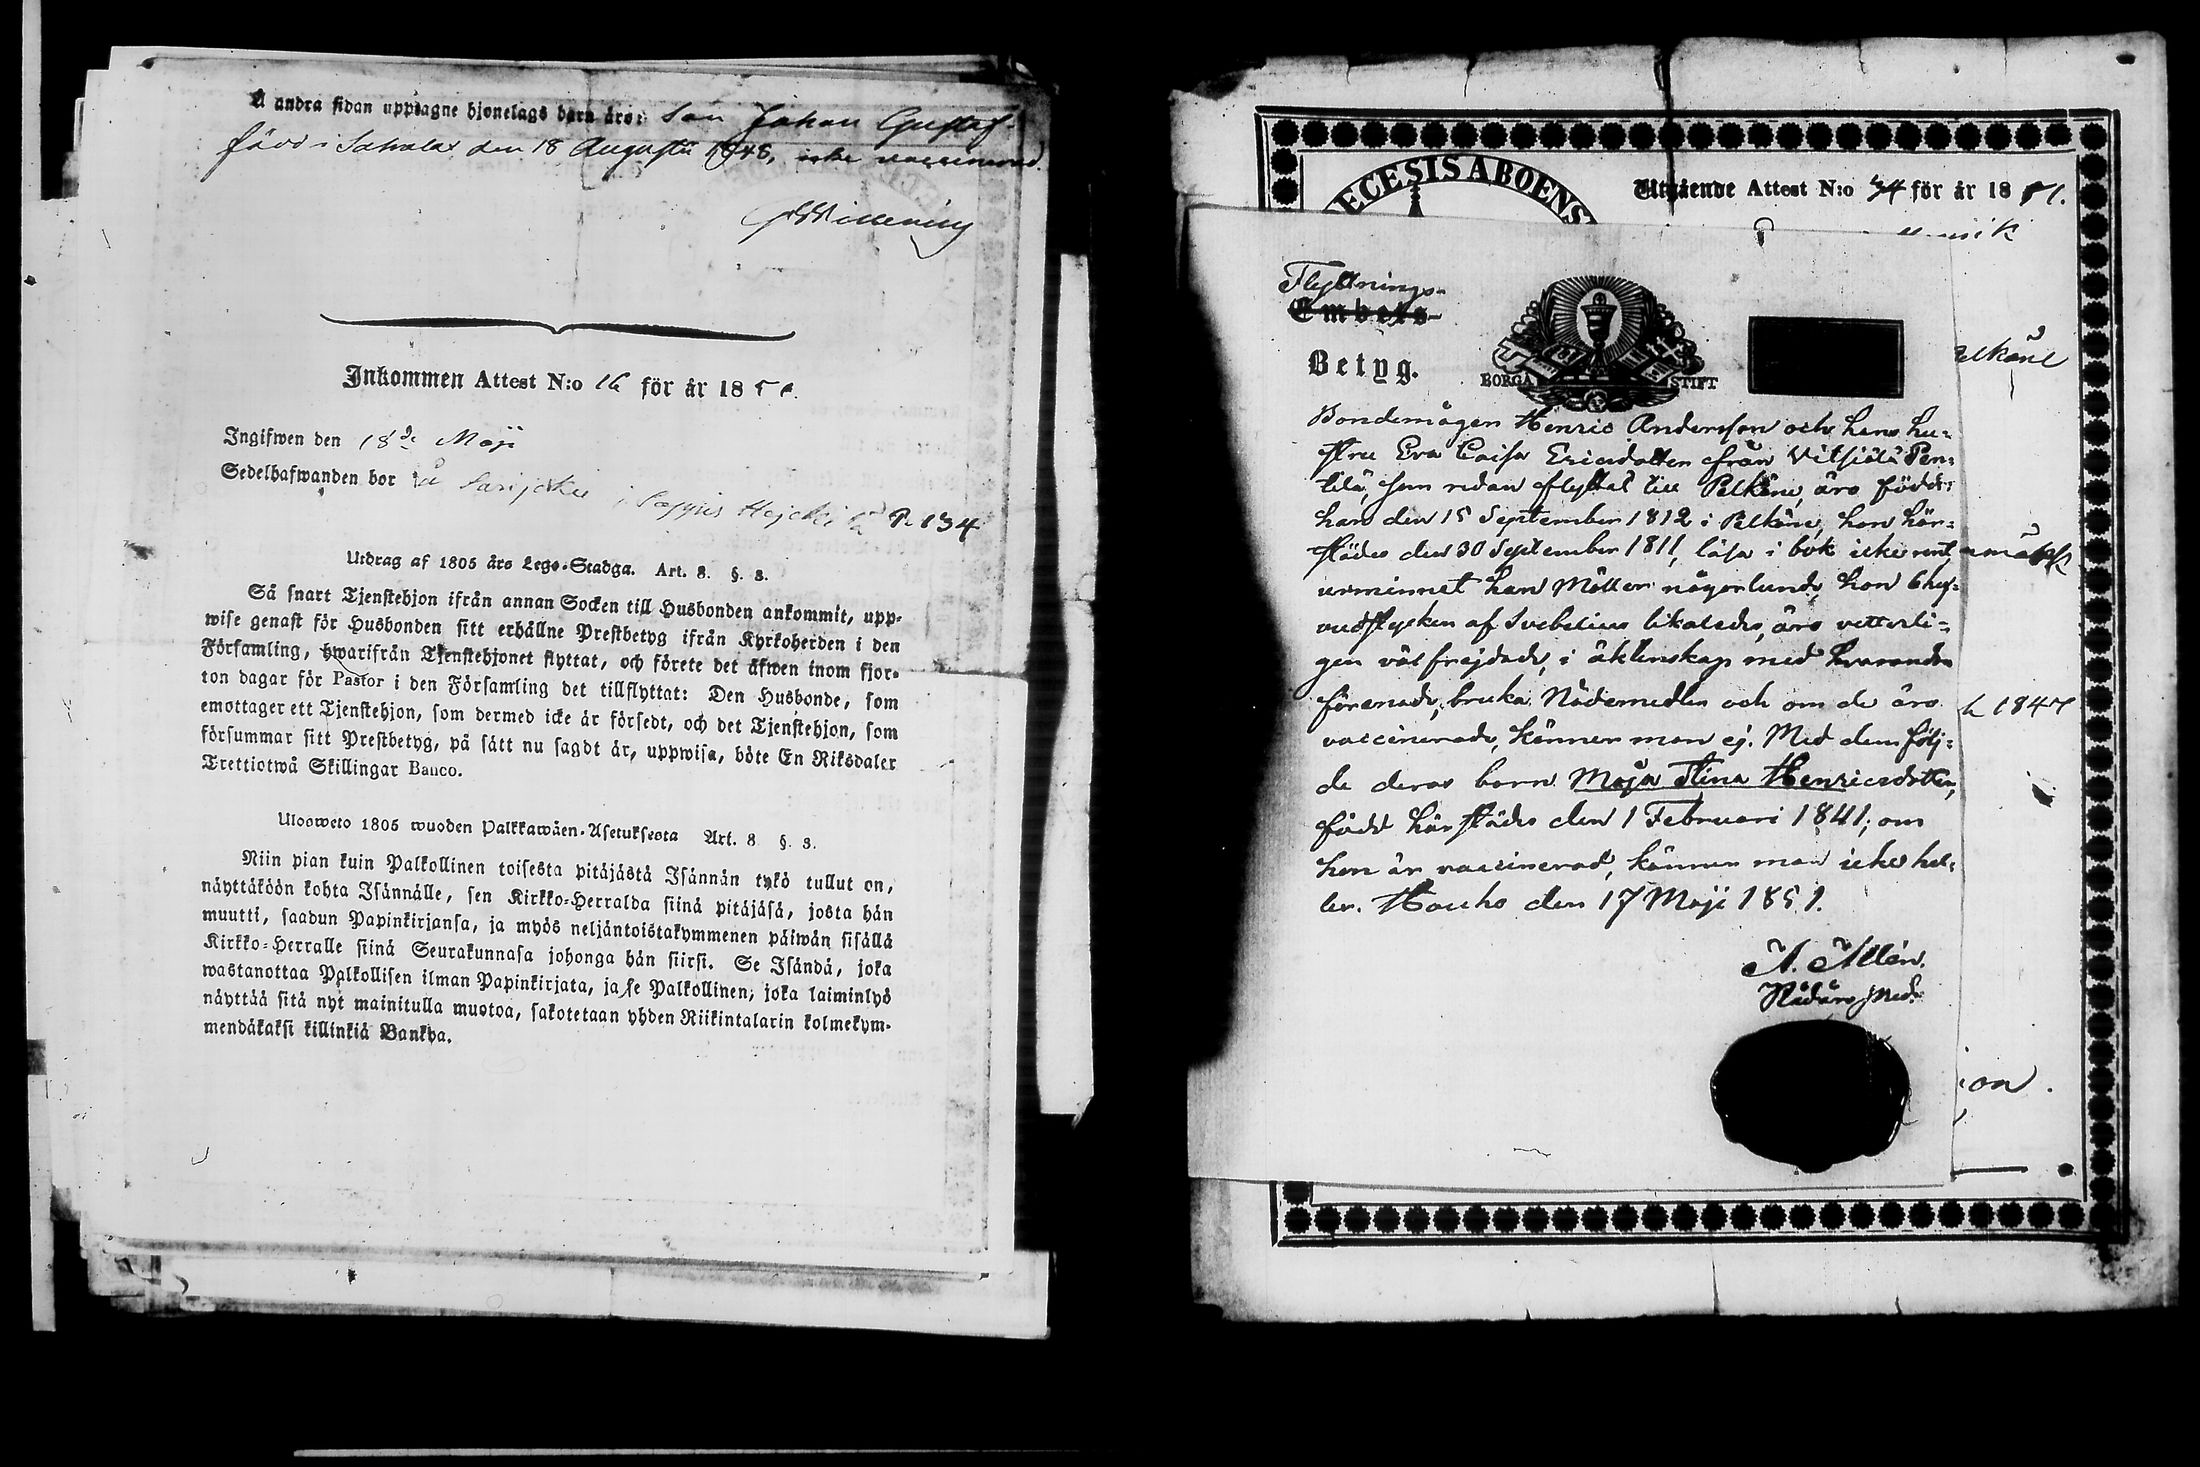 Å andra sidan upptagne hjonelags barn äro: Son Johan Gustaf
född i Sahalax den 18 Augusti 1848, icke vaccinerad.
Inkommen Attest N:o 16 för år 18
Ingifwen den 18de Maji
Sedelhafwanden bor på Sarijoki i Sappis Hejcki P. 134
Utdrag af 1805 års Lego-Stadga. Art. 8. §. 8.
Så snart Tjenstehjon ifrån annan Socken till Husbonden ankommit, upp-
wise genast för Husbonden sitt erhållne Prestbetyg ifrån Kyrkoherden i den
Församling, hwarifrån Tjenstehjonet flyttat, och förete det äfwen inom fjor-
ton dagar för Pastor i den Församling det tillflyttat: Den Husbonde, som
emottager ett Tjenstehjon, som dermed icke är försedt, och det Tjenstehjon, som
försummar sitt Prestbetyg, på sätt nu sagdt är, uppwisa, böte En Riksdaler
Trettiotwå Skillingar Banco.
Ulosweto 1805 wuoden Palkkawäen-Asetuksesta Art. 8 §. 8.
Niin pian kuin Palkollinen toisesta pitäjästä Isännän tykö tullut on,
näyttäköön kohta Isännälle, sen Kirkko-Herralda siinä pitäjäsä, josta hän
muutti, saadun Papinkirjansa, ja myös neljäntoistakymmenen päiwän sisällä
Kirkko-Herralle siinä Seurakunnasa johonga hän siirsi. Se Isändä, joka
wastanottaa Palkollisen ilman Papinkirjata, ja se Palkollinen, joka laiminlyö
näyttää sitä nyt mainitulla muotoa, sakotetaan yhden Riikintalarin kolmekym-
mendäkaksi killinkiä Bankya.
ECESIS ABOENS
Utgående Attest N:o 34 för år 1851.
Flyttnings-
Embets-
Betyg.
BORGÅ STIFT
elkäne
Bondemågen Henric Andersson och hans hu-
stru Eva Caisa Ericsdotter från Vitsiälä Pen-
tilä, som redan flyttat till Pelkäne, äro födde:
han den 15 September 1812 i Pelkäne, hon här-
städes den 30 September 1811, läsa i bok icke rent,
urminnet han Möller någorlunda, hon 6 huf-
vudstycken af Svebelius likaledes, äro vetterli-
gen väl frejdade, i äktenskap med hvarandra
förenade, bruka Nådemedlen och om de äro
1847
vaccinerade, känner man ej. Med dem följ-
de deras barn Maja Stina Henricsdotter,
född härstädes den 1 Februari 1841; om
hon är vaccinerad, känner man icke hel-
ler. Hauho den 17 Maji 1851.
A. Allén.